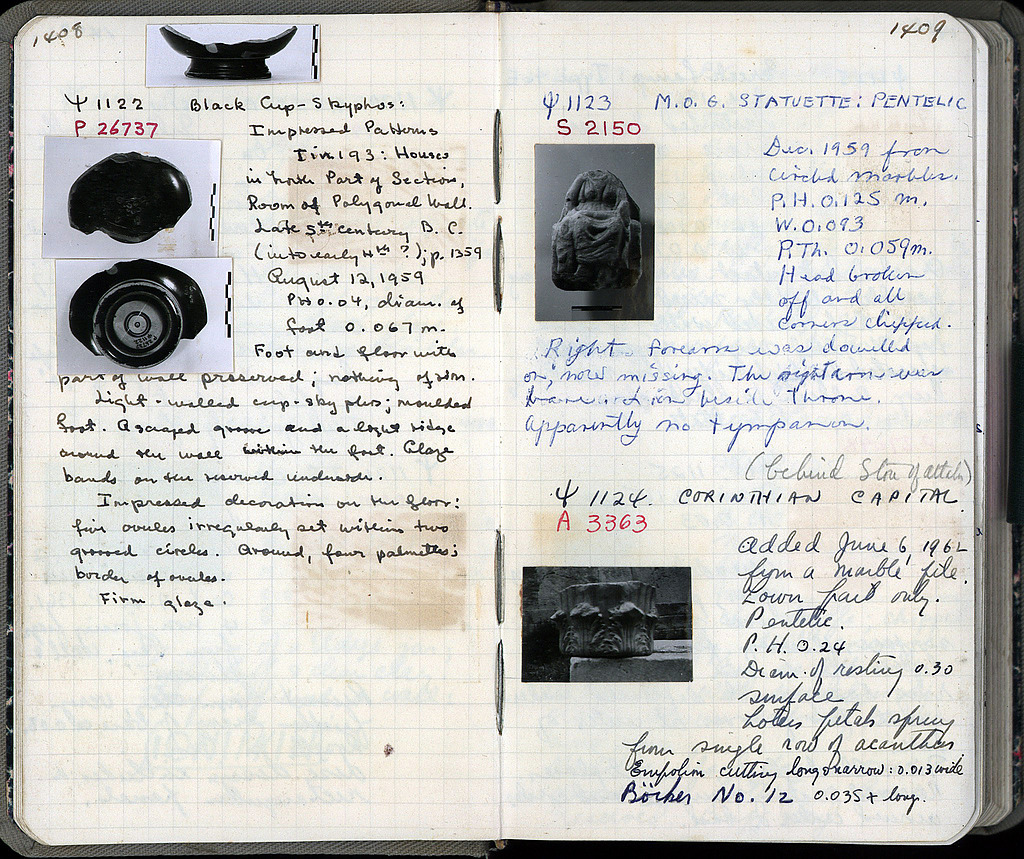 1408
Ψ 1122 Black Cup-Skyphos:
P 26737
Impressed Patterns
193: House
in North Part of Section,
Room of Polygonal Wall.
Late 5th century B.C.
(into early 4th ?); p. 1359
August 12, 1959
PH 0.04, diam. of
foot 0.067 m.
Foot and floor with
part of wall preserved; nothing of rim.
Light-walled cup-skyphos; moulded
foot. A scraped groove and a light ridge
around the wall within the foot. Glaze
bands on the reserved underside.
Impressed decoration on the floor:
five ovules irregularly set within two
grooved circles. Around, four palmettes;
border of ovules.
Firm glaze.
1409
Ψ 1123 M.O.G. STATUETTE: PENTELIC
S 2150
Dec. 1959 from
circled marbles.
P.H. 0.125 m.
W. 0.093
P.Th. 0.059 m.
Head broken
off and all
corners chipped.
Right forearm was dowelled
on; now missing. The right arm was
beside throne.
Apparently no tympanon.
(behind Stoa of Attalos)
Ψ 1124. CORINTHIAN CAPITAL.
A 3363
Added June 6, 1962
from a marble pile.
Lower part only.
Pentelic.
P.H. 0.24
Diam. of resting 0.30
surface
Lotus petals spring
from single row of acanthus
Empolion cutting long & narrow: 0.013 wide
No. 12 0.035+ long.